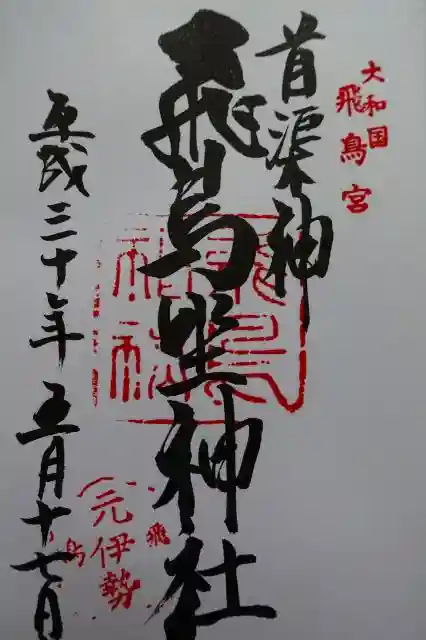 大和国
飛鳥宮
首渠神
飛鳥坐神社
飛鳥
神社
平成三十年五月十七日
(元伊勢
飛
鳥